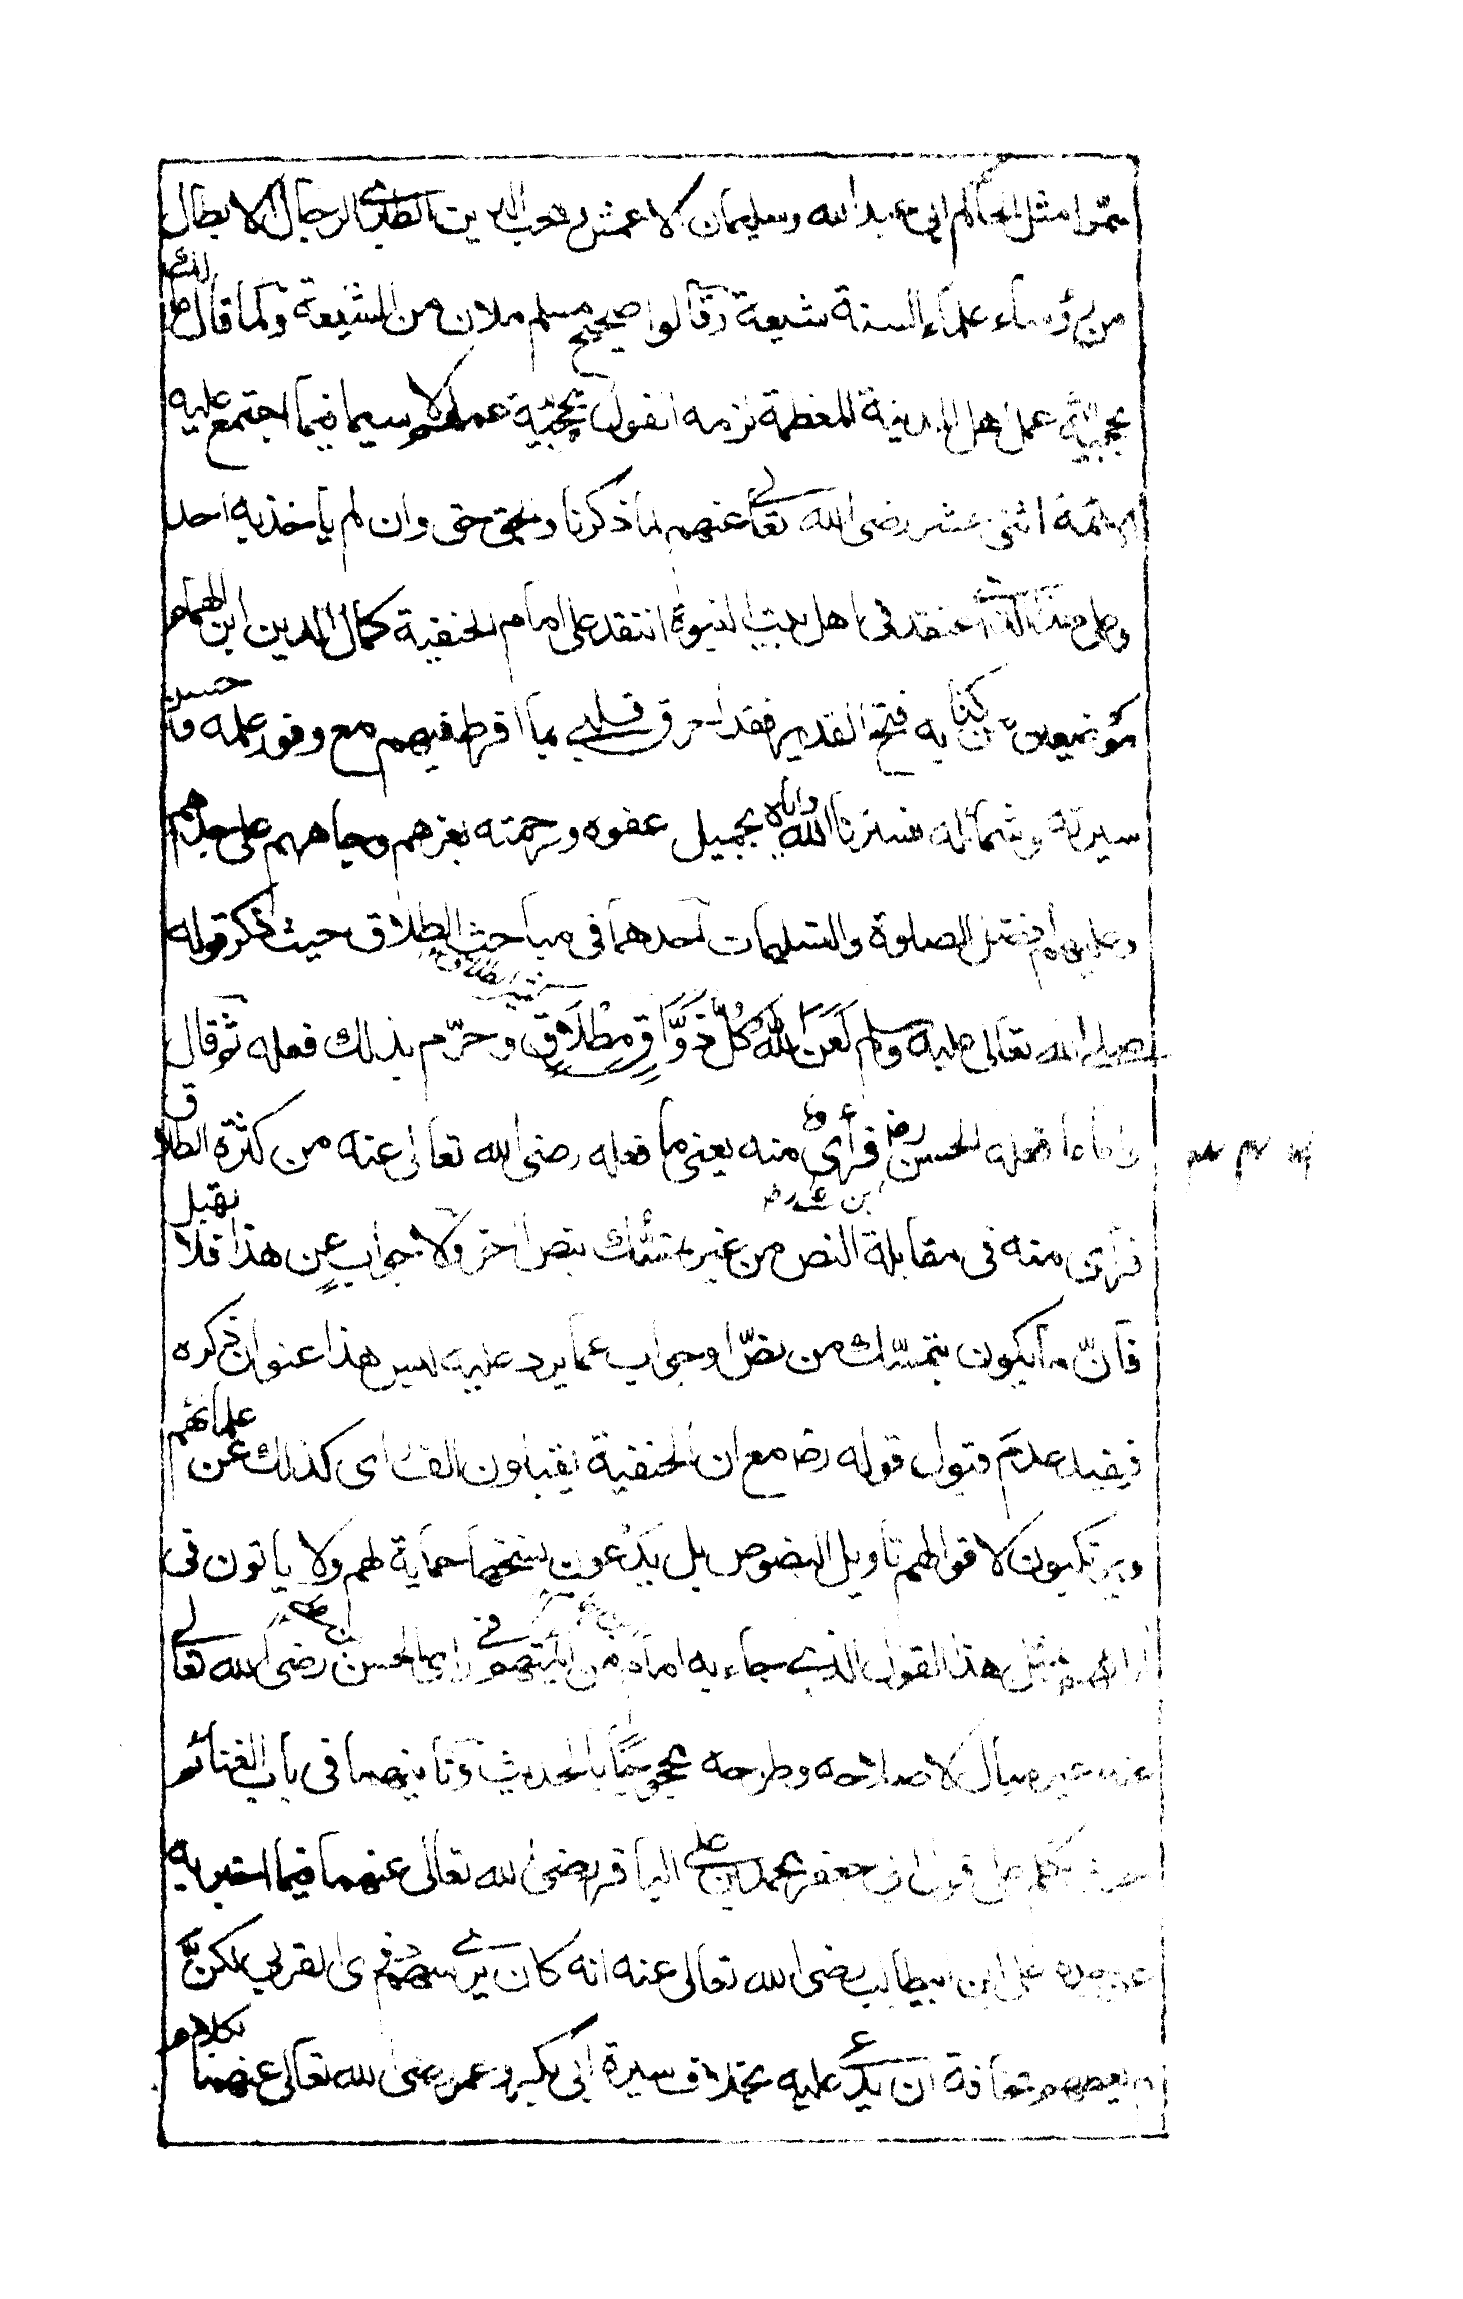 سموا مثل الحاكم ابي عبد الله وسليمان الاعمش ومحب الدين الطبري الرجال الابطال
من رؤساء علماء السنة شيعة وقالوا صحيح مسلم ملان من الشيعة وكما قال مالك
بحجية عمل اهل المدينة المعظمة لزمه القول بحجية عملهم ولا سيما فيما اجتمع عليه
الائمة اثنى عشر رضى الله تعالى عنهم لما ذكرنا والحق حق وان لم ياخذ به احد
وعلى هذا اعتقد فى اهل بيت النبوة انتقد على امام الحنفية كمال الدين ابن الهمام
موضعين من كتابه فتح القدير فقد احرق قلبي بما افرط فيهم مع وفور علمه وحسن
سيرته وشمائله فسترنا الله واياه بجميل عفوه ورحمته بعزهم وجاههم على جدهم
وعليهم افضل الصلوة والتسليمات احدهما فى مباحث الطلاق حيث ذكر قوله
صلى الله تعالى عليه وسلم لَعَنَ اللهُ كُلَّ ذَوَّاقٍ مِطْلَاقٍ وحرّم بذلك فعله ثم قال
واما ما فعله الحسن رض فرأي منه يعنى ما فعله رضى الله تعالى عنه من كثرة الطلاق
فرأى منه فى مقابلة النص من غير تمسك بنص اخر ولا جواب عن هذا فلا يقبل
فانّ ما يكون بتمسّك من نصّ او جواب عما يرد عليه ليس هذا عنوان ذكره
فيفيد عدم قبول قوله رض مع ان الحنفية يقبلون الف راى كذلك عن علمائهم
ويرتكبون لاقوالهم تاويل النصوص بل يدّعون نسخها حماية لهم ولا ياتون فى
ارائهم مثل هذا القول الذى جاء به امام من ائمتهم فى راى الحسن رضى الله تعالى
عنه غير مبال لاصلاحه وطرحه محجوجا بالحديث وثانيهما فى باب الغنائم
حيث تكلم على قول ابى جعفر محمد بن على الباقر رضى الله تعالى عنهما فيما اخبر به
عن جده على ابن ابيطالب رضى الله تعالى عنه انه كان يرى سهم ذوى القربى لكن
لم يعطهم مخافة ان يدعى عليه بخلاف سيرة ابى بكر وعمر رضى الله تعالى عنهما بكلام